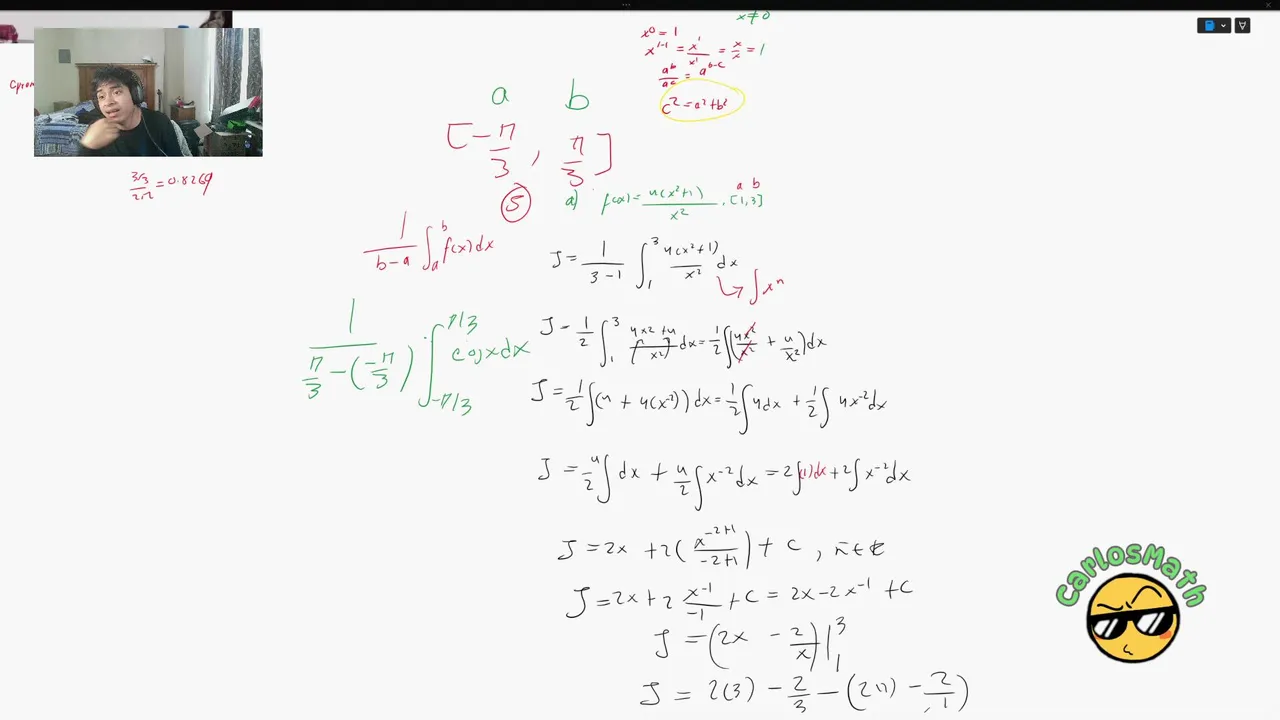 x≠0
x⁰=1
x¹⁻¹ = x¹/x¹ = x/x = 1
aᵇ/aᶜ = aᵇ⁻ᶜ
c²=a²+b²
a b
[-π/3, π/3]
3√3/2π=0.8269
5
a) f(x)=4(x²+1)/x², [1,3]
a b
1/(b-a) ∫ₐᵇ f(x)dx
J = 1/(3-1) ∫₁³ 4(x²+1)/x² dx
↳ ∫xⁿ
1/(π/3-(-π/3)) ∫_{-π/3}^{π/3} cosxdx
J = 1/2 ∫₁³ (4x2+4)/(x²) dx = 1/2 ∫(4x²/x² + 4/x²)dx
J = 1/2 ∫(4 + 4(x⁻²))dx = 1/2 ∫4dx + 1/2 ∫ 4x⁻²dx
J = 4/2 ∫dx + 4/2 ∫x⁻²dx = 2∫(1)dx + 2∫x⁻²dx
J = 2x + 2(x⁻²⁺¹/-2+1) + C,
J = 2x + 2 x⁻¹/-1 + C = 2x-2x⁻¹ + C
J = (2x - 2/x)|₁³
J = 2(3) - 2/3 - (2(1) - 2/1)
CarlosMath